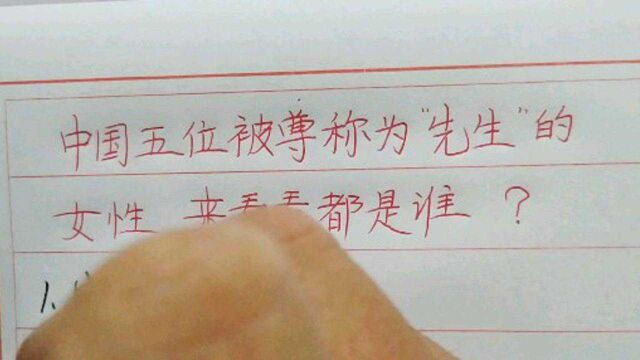 中国五位被尊称为“先生”的
女性 来看看都是谁 ?
1、